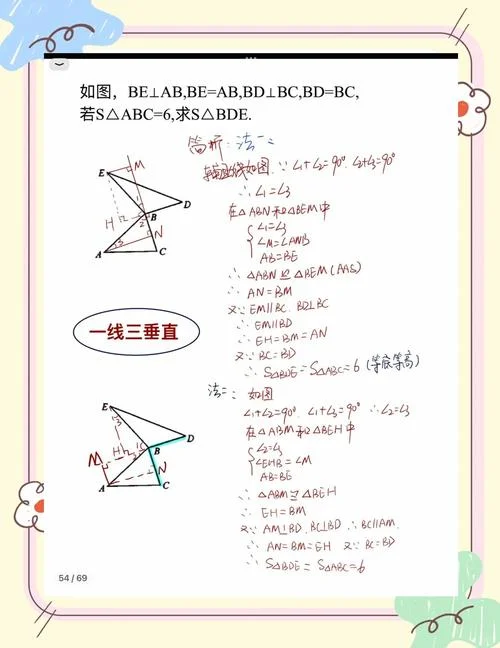 如图，BE⊥AB,BE=AB,BD⊥BC,BD=BC,
若S△ABC=6,求S△BDE.
简析：法一：
辅助线如图.∵∠1+∠2=90°.∠2+∠3=90°
∴∠1=∠3
在△ABN和△BEM中
∠1=∠3
∠M=∠ANB
AB=BE
∴△ABN≌△BEM(AAS)
∴AN=BM
又∵EM∥BC.BD⊥BC
∴EM∥BD
∴EH=BM=AN
又∵BC=BD
∴S△BDE=S△ABC=6(等底等高)
E
M
1
B
D
H
2
N
3
A
C
一线三垂直
法二：如图
∠1+∠2=90°.∠1+∠3=90°∴∠2=∠3
在△ABM和△BEH中
∠2=∠3
∠EHB=∠M
AB=BE
∴△ABM≌△BEH
∴EH=BM
又∵AM⊥BD.BC⊥BD.∴BC∥AM.
∴AN=BM=EH 又∵BC=BD
∴S△BDE=S△ABC=6
E
3
D
H
1
B
M
2
N
A
C
54/69